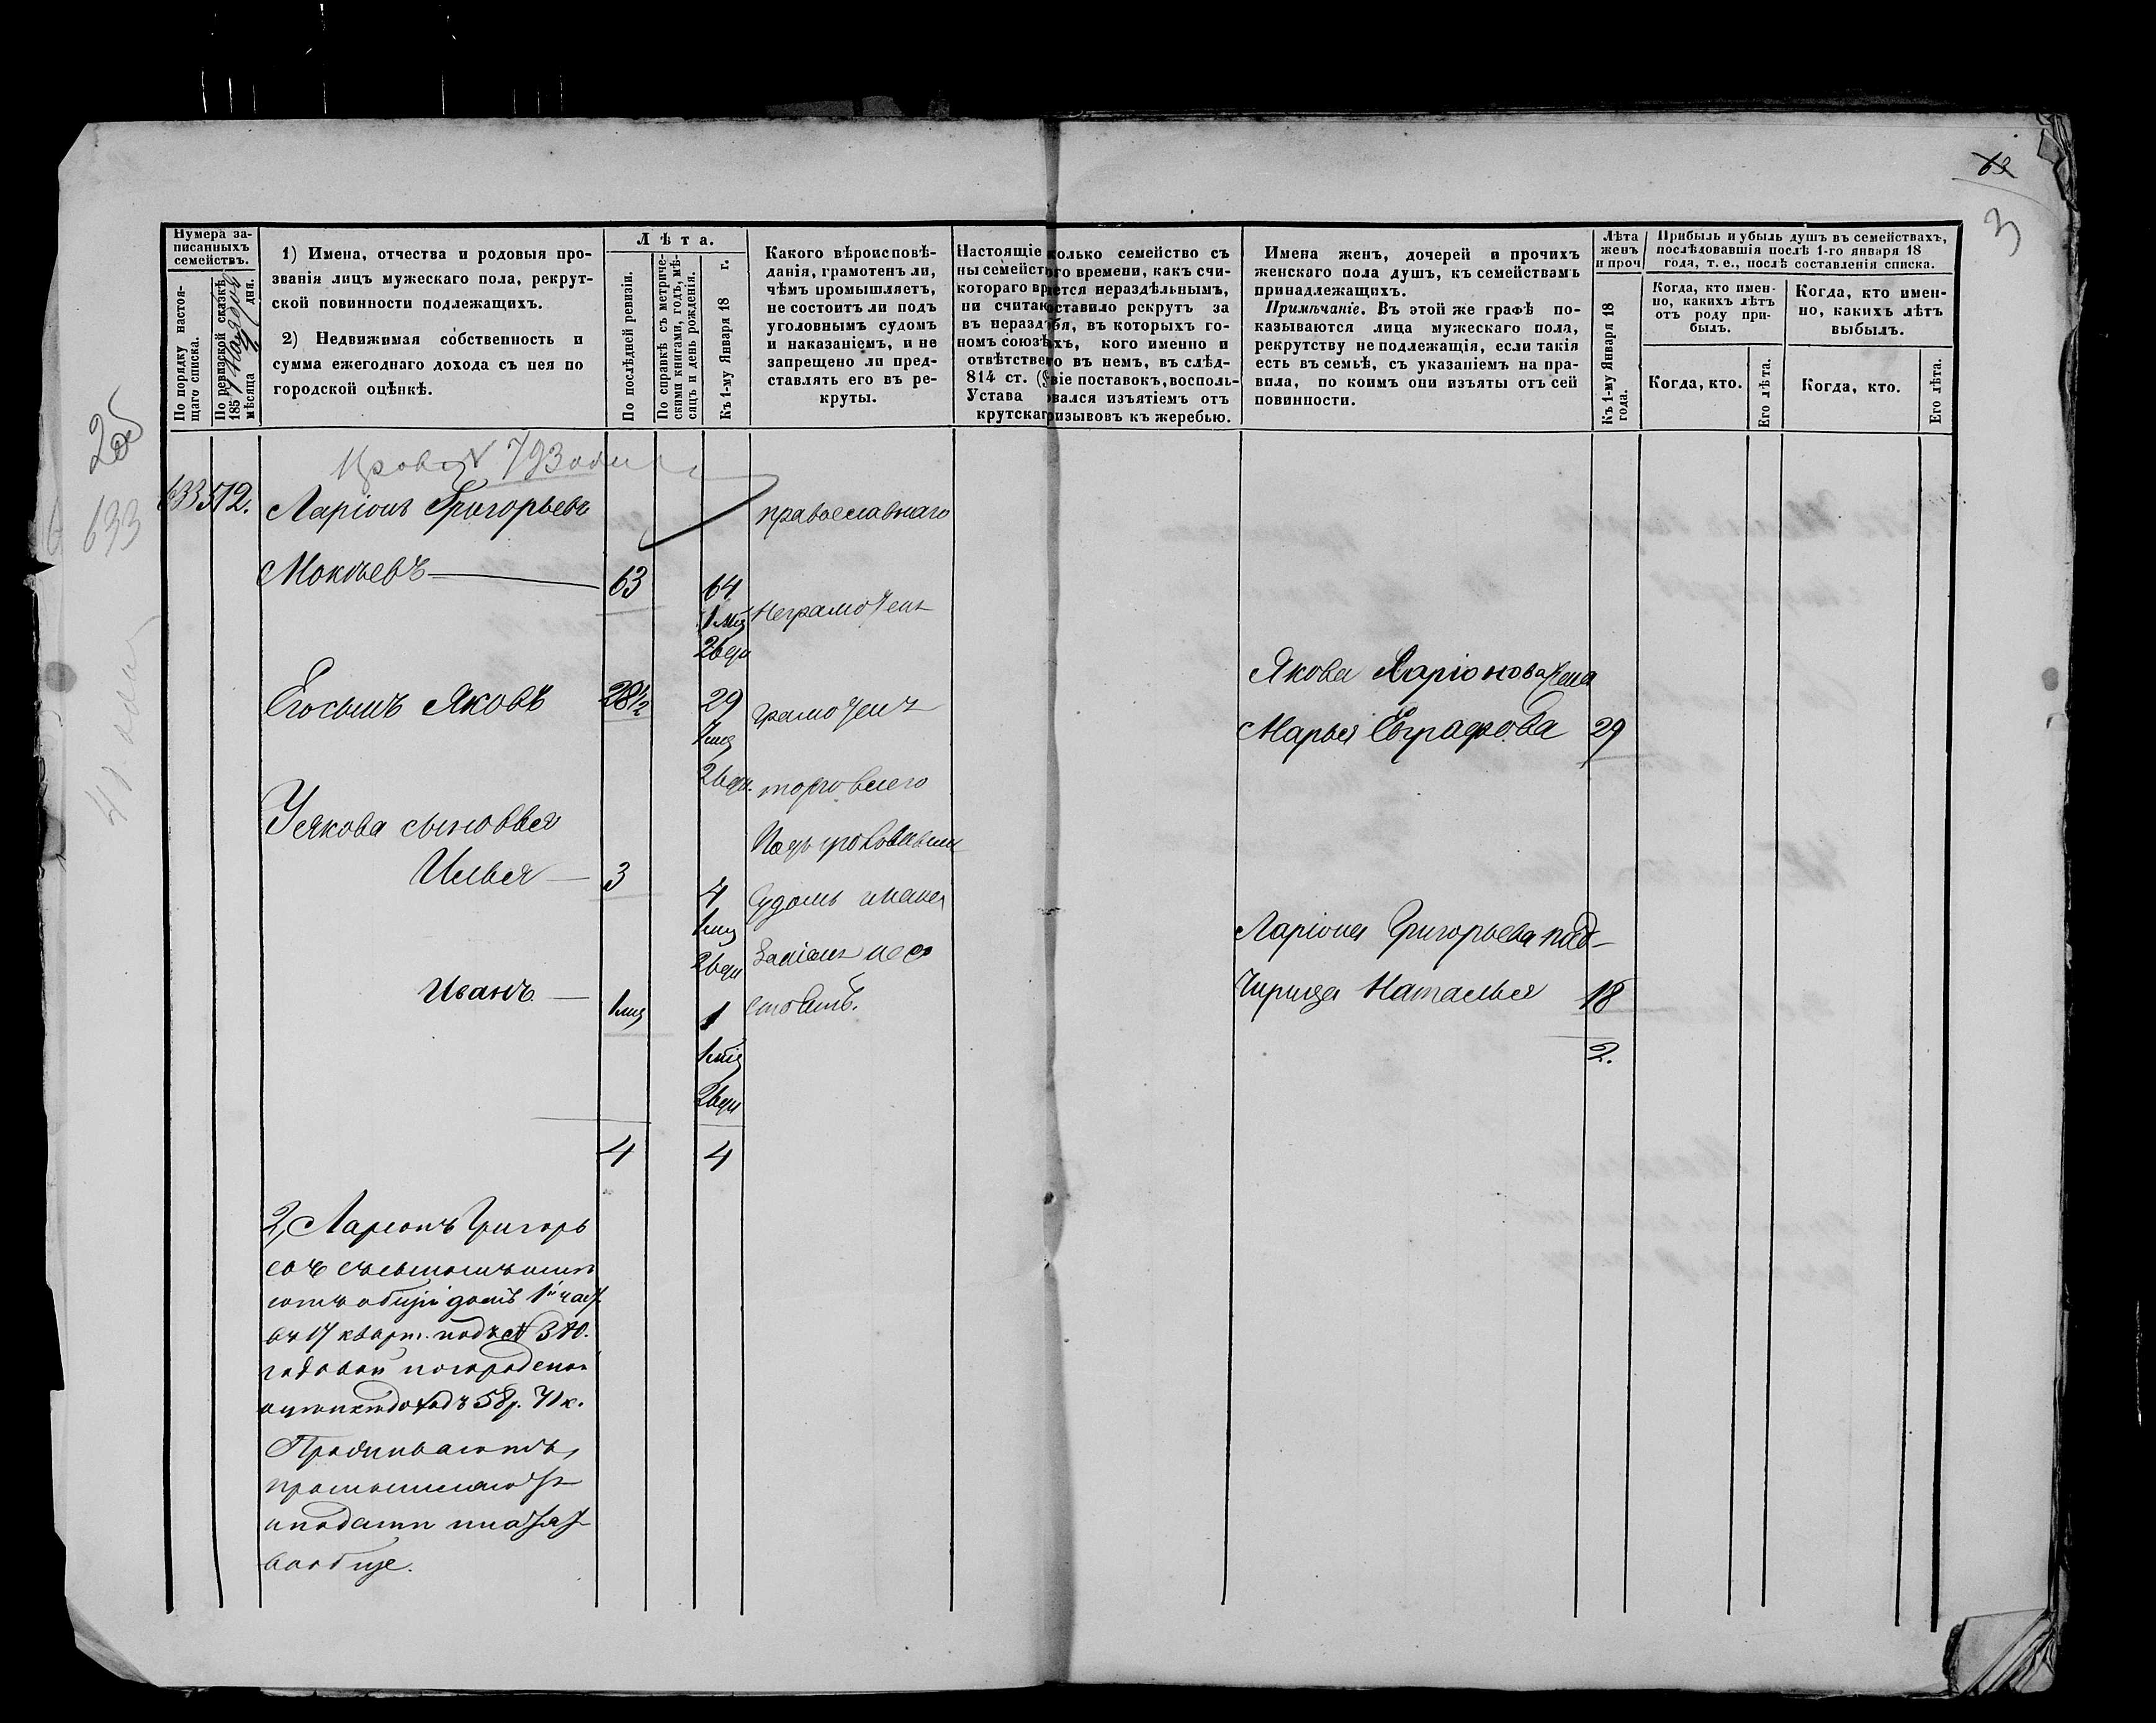 63
3
Нумера за-
писанныхъ
семействъ.
По порядку настоя-
щаго списка.
По ревизской сказкѣ
185
мѣсяца дня.
1) Имена, отчества и родовыя про-
званія лицъ мужескаго пола, рекрут-
ской повинности подлежащихъ.
2) Недвижимая собственность и
сумма ежегоднаго дохода съ нея по
городской оцѣнкѣ.
Лѣта.
По послѣдней ревизіи.
По справкѣ съ метриче-
скими книгами, годъ, мѣ-
сяцъ и день рожденія.
Къ 1-му Января 18 г.
Какого вѣроисповѣ-
данія, грамотенъ ли,
чѣмъ промышляетъ,
не состоитъ ли подъ
уголовнымъ судомъ
и наказаніемъ, и не
запрещено ли пред-
ставлять его въ ре-
круты.
Настоящіе колько семейство съ
ны семейст го времени, какъ счи-
котораго вр ется нераздѣльнымъ,
ни считаю оставило рекрутъ за
въ неразд бя, въ которыхъ го-
номъ союзѣ хъ, кого именно и
отвѣтстве о въ немъ, въ слѣд-
814 ст. (§ віе поставокъ, восполь-
Устава вался изъятіемъ отъ
крутска ризывовъ къ жеребью.
Имена женъ, дочерей и прочихъ
женскаго пола душъ, къ семействамъ
принадлежащихъ.
Примѣчаніе. Въ этой же графѣ по-
казываются лица мужескаго пола,
рекрутству неподлежащія, если такія
есть въ семьѣ, съ указаніемъ на пра-
вила, по коимъ они изъяты отъ сей
повинности.
Лѣта
женъ
и проч
Къ 1-му Января 18
года.
Прибыль и убыль душъ въ семействахъ,
послѣдовавшія послѣ 1-го января 18
года, т. е., послѣ составленія списка.
Когда, кто имен-
но, какихъ лѣтъ
отъ роду при-
былъ.
Когда, кто имен-
но, какихъ лѣтъ
выбылъ.
Когда, кто.
Его лѣта.
Когда, кто.
Его лѣта.
2об
633
№ 793
633 572. Ларіонъ Григорьевъ православнаго
Мокѣевъ 63 64
1 мѣс неграмотенъ
26 дн
Его сынъ Яковъ 28½ 29 грамотенъ
1 мѣс
26 дн. торговлею
Якова Ларіонова жена
Марья Евграфова 29
У Якова сыновья
Подъ уголовнымъ
Илья 3 4 Судомъ и нака
1 мѣс
26 дн заніемъ не со
Иванъ 1 мѣс 1 стоятъ.
1 мѣс
26 дн
Ларіона Григорьева пад-
чирица Наталья 18
2.
4 4
2, Ларіонъ Григорь
евъ съ сыномъ имѣ
ютъ общій домъ 1й част.
въ 17 кварт. подъ № 370.
годовой по городской
оцѣнкѣ доходъ 58 р. 71 к.
Проживаютъ,
промышляютъ
и подати платят
вообще.